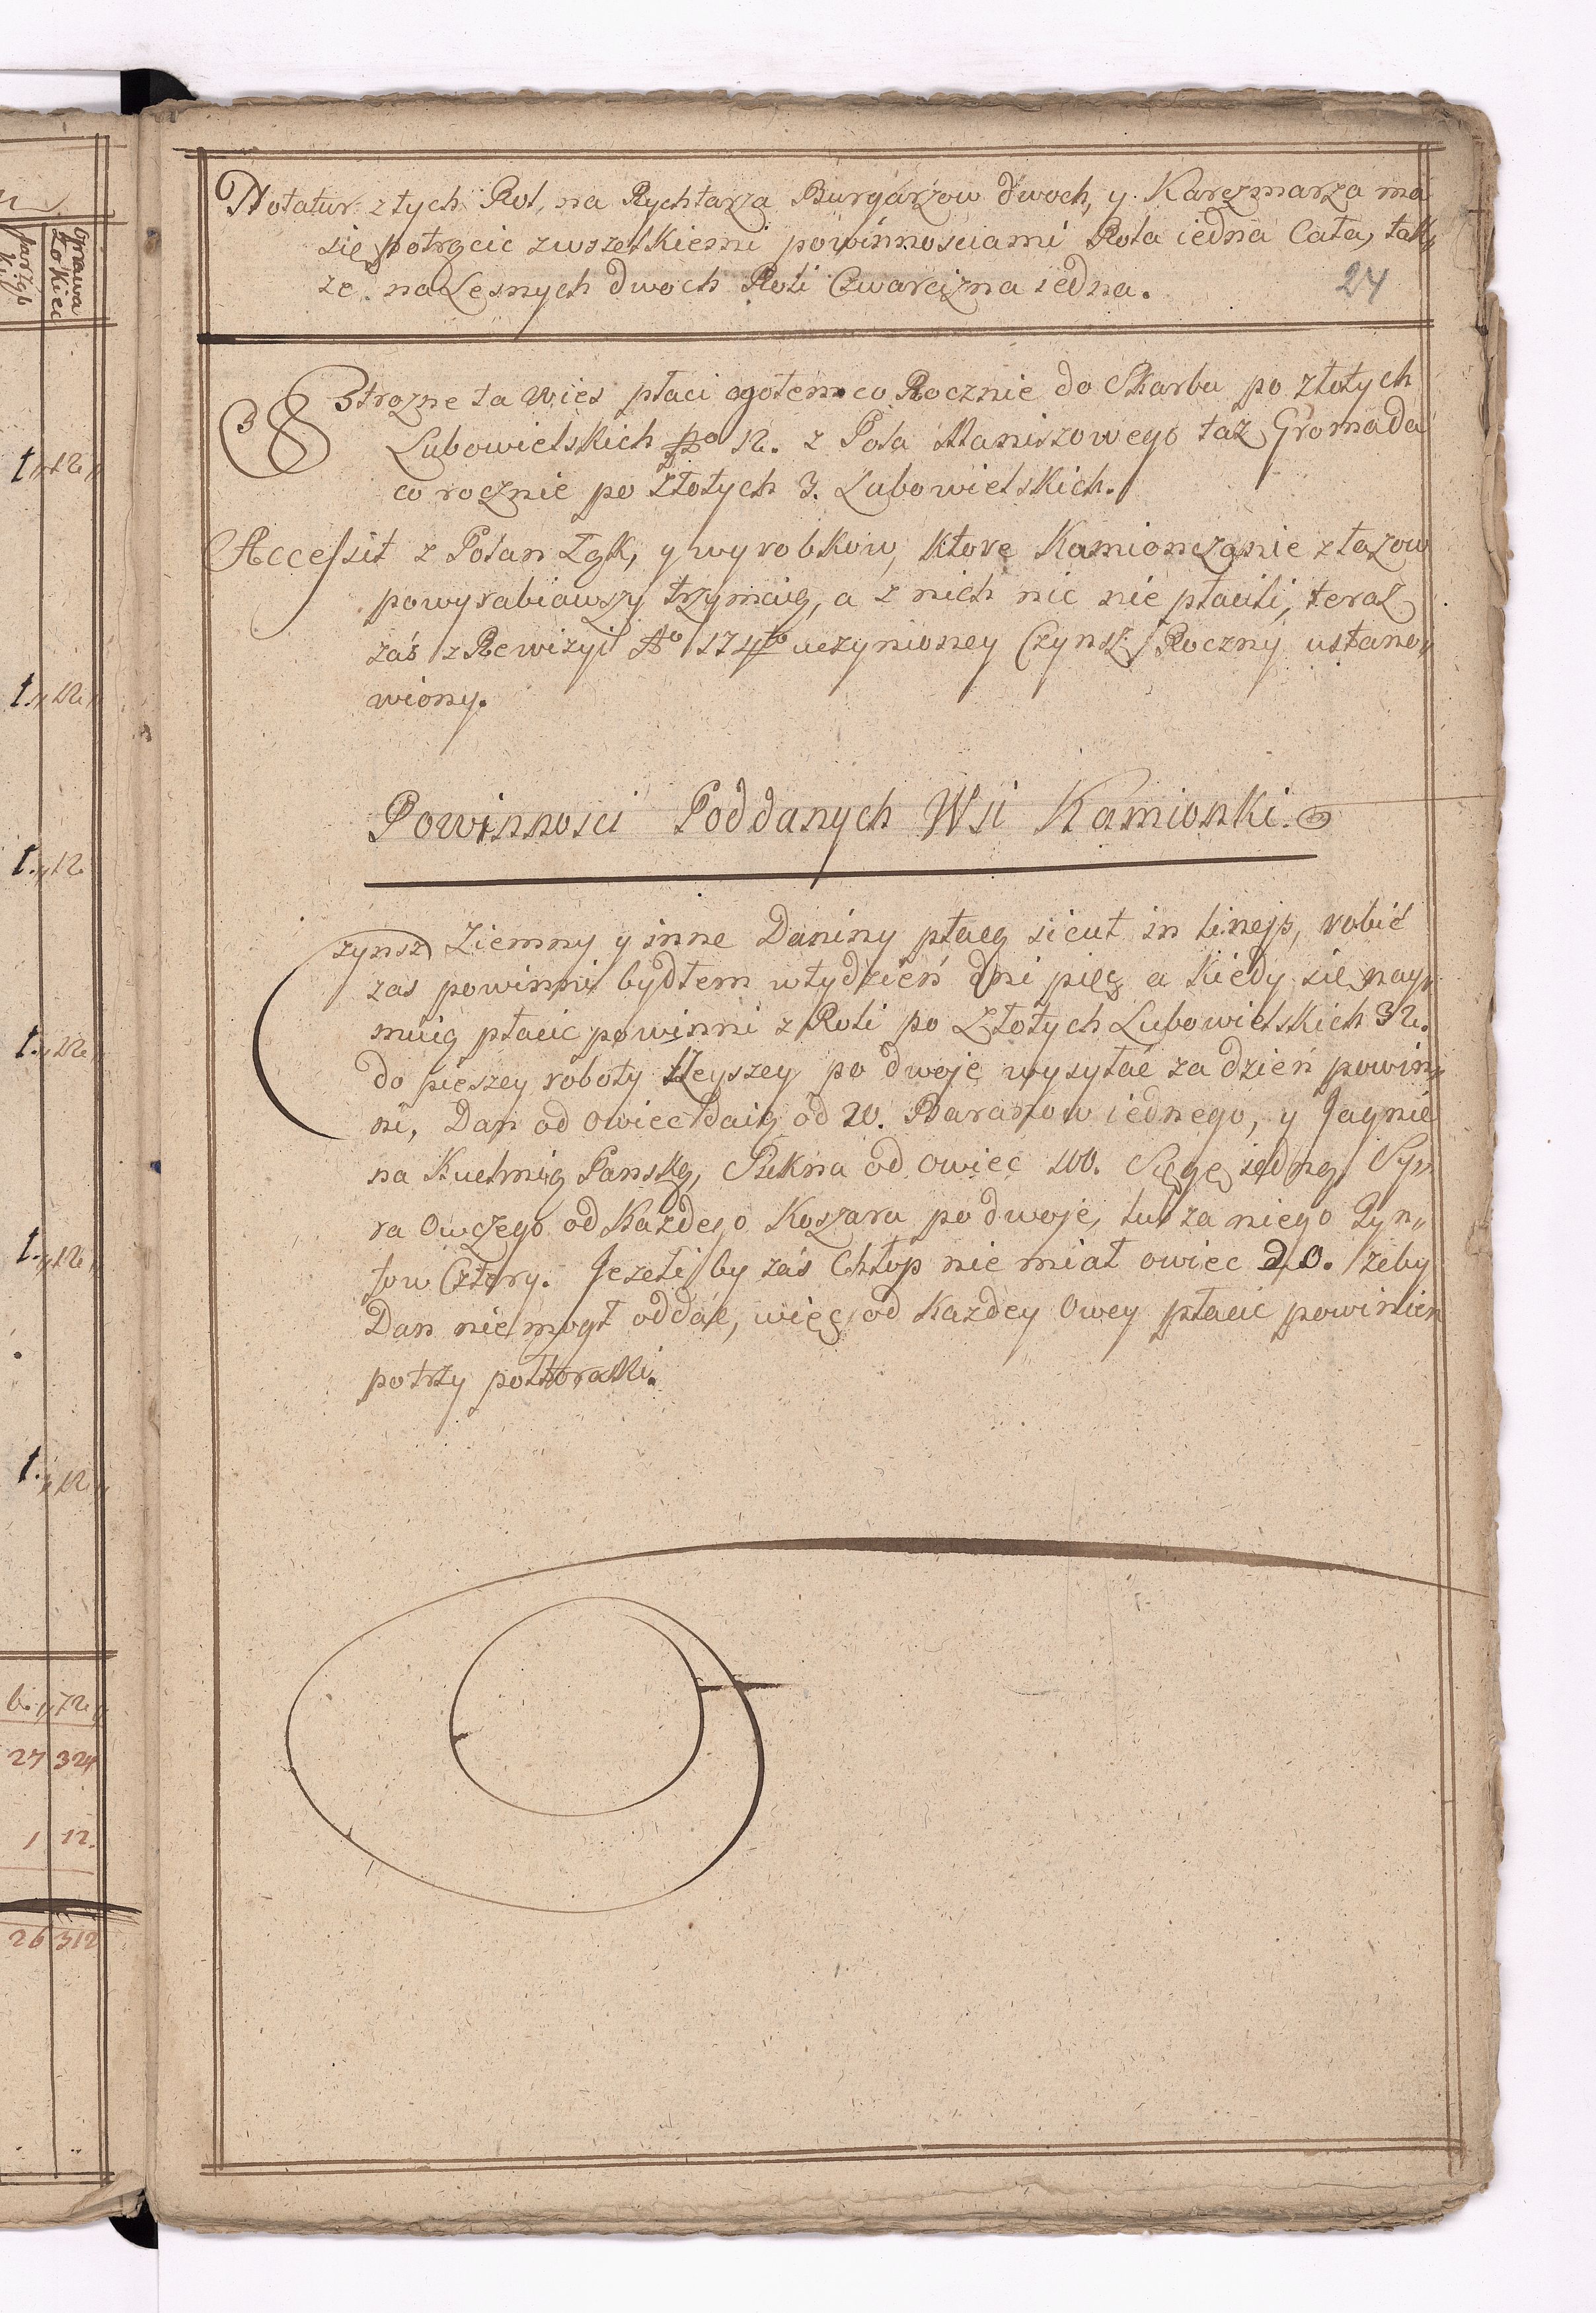 Notatur z tych Rol, na Rychtarza Burgarzow dwoch, y Karczmarza ma
się potrącic zwszelkiemi powinnosciami Rola iedna Cała, tak„
ze na Lesnych dwoch Roli Cwarcizna iedna.
24
Strozne ta Wies płaci ogołem co Rocznie do Skarbu po złotych
Lubowielskich 12. z Pola Maniszowego taz Gromada
co rocznie po Złotych 3. Lubowielskich.
Accessit z Polan Łąk, y wyrobkow, ktore Kamionczanie złazow
powyrabiawszy trzymaią, a z nich nic nie płacili, teraz
zaś z Rewizyi Aº 174 uczynioney Czynsz Roczny ustano„
wiony.
Powinnosci Poddanych Wsi Kamionki.
Czynsz Ziemny y inne Daniny płacą sicut in lineis, robić
zas powinni bydłem wtydzień dni pięc a kiedy się nay„
muią płacic powinni z Roli po Złotych Lubowielskich 32.
do pieszey roboty po dwoje wysyłać za dzień powin„
ni, Dan od owiec daią od 20. Baranow iednego, y Jagnie
na Kuchnią Panską, od owiec 100. iedną, Sy„
ra Owczego od Kazdego Koszara po dwoje, lub za niego Gyn„
tow Cztery. Jezeli by zaś Chłop nie miał owiec 20. zeby
Dan nie mogł oddać, więc od Kazdey Owcy płacic powinien
po trzy połtoraki.
oprawa
Zokiec
1.„12„
1.„12„
1.„12
1.„12„
1.„12„
1.„12„
6.„72„
27 324
1 12.
26 312